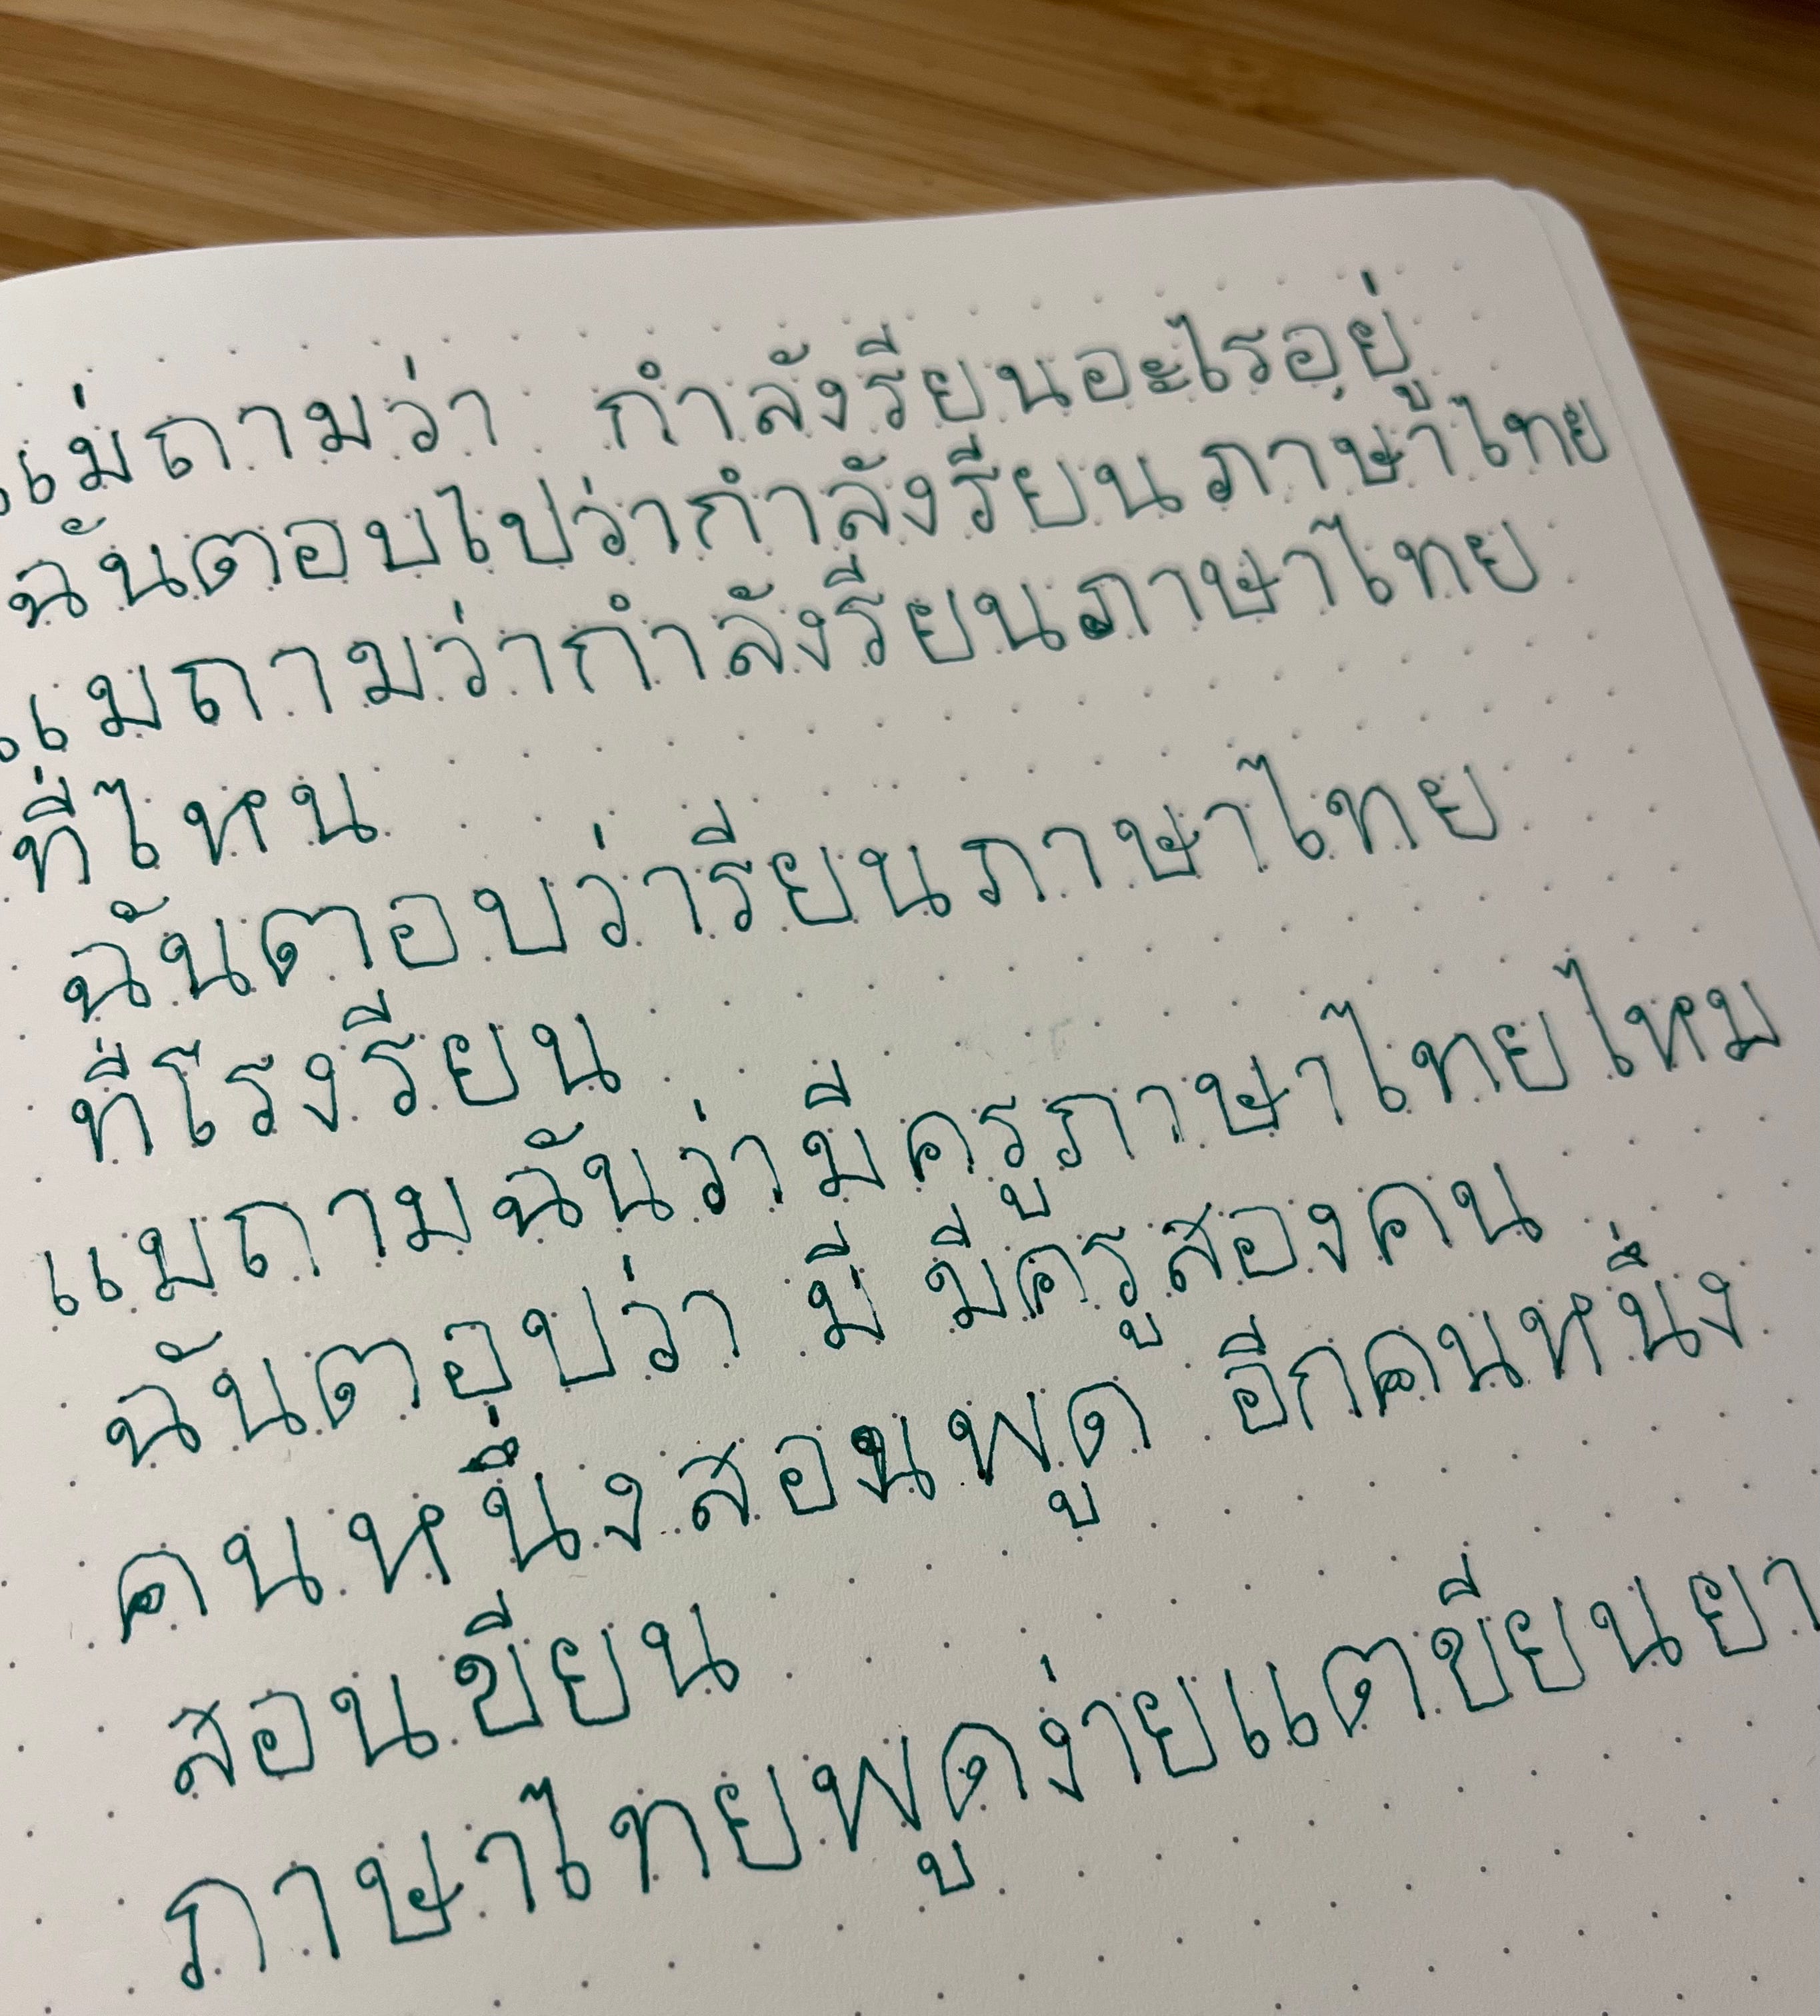 แม่ถามว่า กำลังรียนอะไรอยู่
ฉันตอบไปว่ากำลังรียนภาษาไทย
แมถามว่ากำลังรียนภาษาไทย
ที่ไหน
ฉันตอบว่ารียนภาษาไทย
ที่โรงรียน
แมถามฉันว่ามีครูภาษาไทยไหม
ฉันตอบว่า มี มีครูสองคน
คนหนึ่งสอนพูด อีกคนหนึ่ง
สอนขียน
ภาษาไทยพูดง่ายแตขียนยา